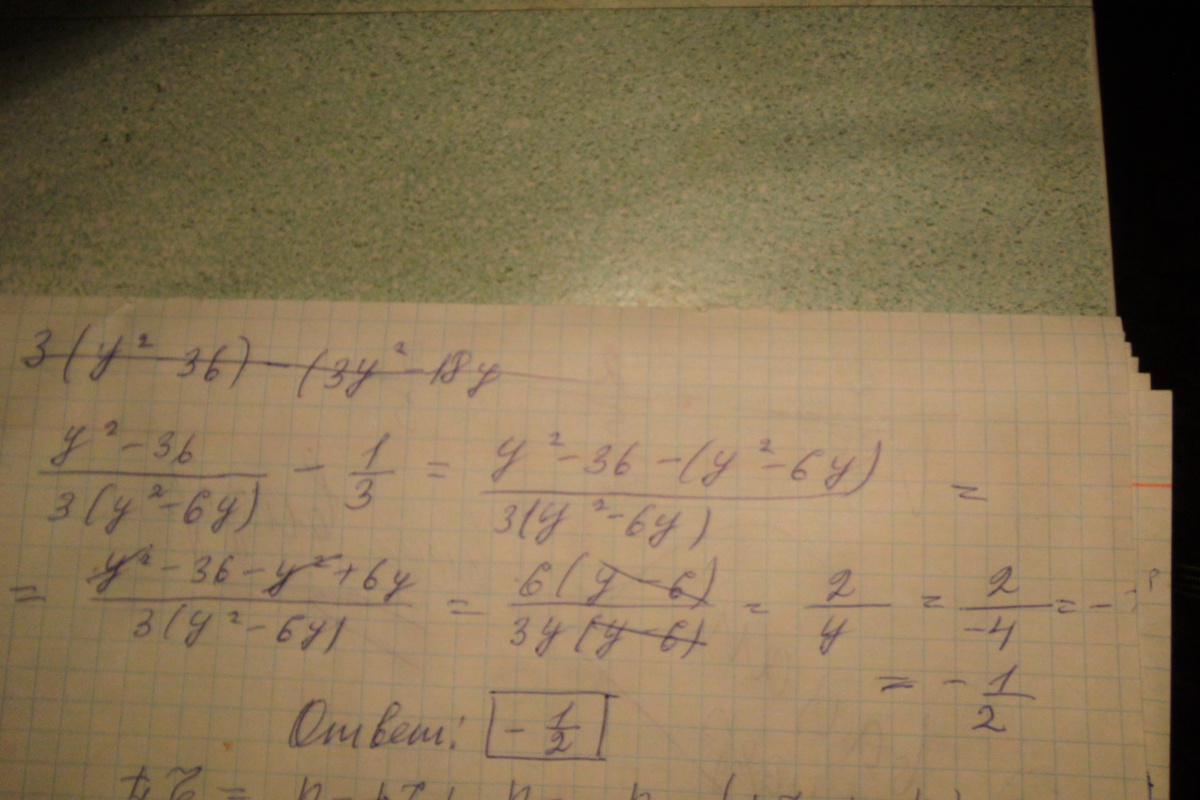 3(y² 36) - (3y² - 18y
(y² - 36)/(3(y² - 6y)) - 1/3 = (y² - 36 - (y² - 6y))/(3(y² - 6y)) =
= (y² - 36 - y² + 6y)/(3(y² - 6y)) = (6(y - 6))/(3y(y - 6)) = 2/y = 2/(-4) = -
= - 1/2
Ответ: - 1/2